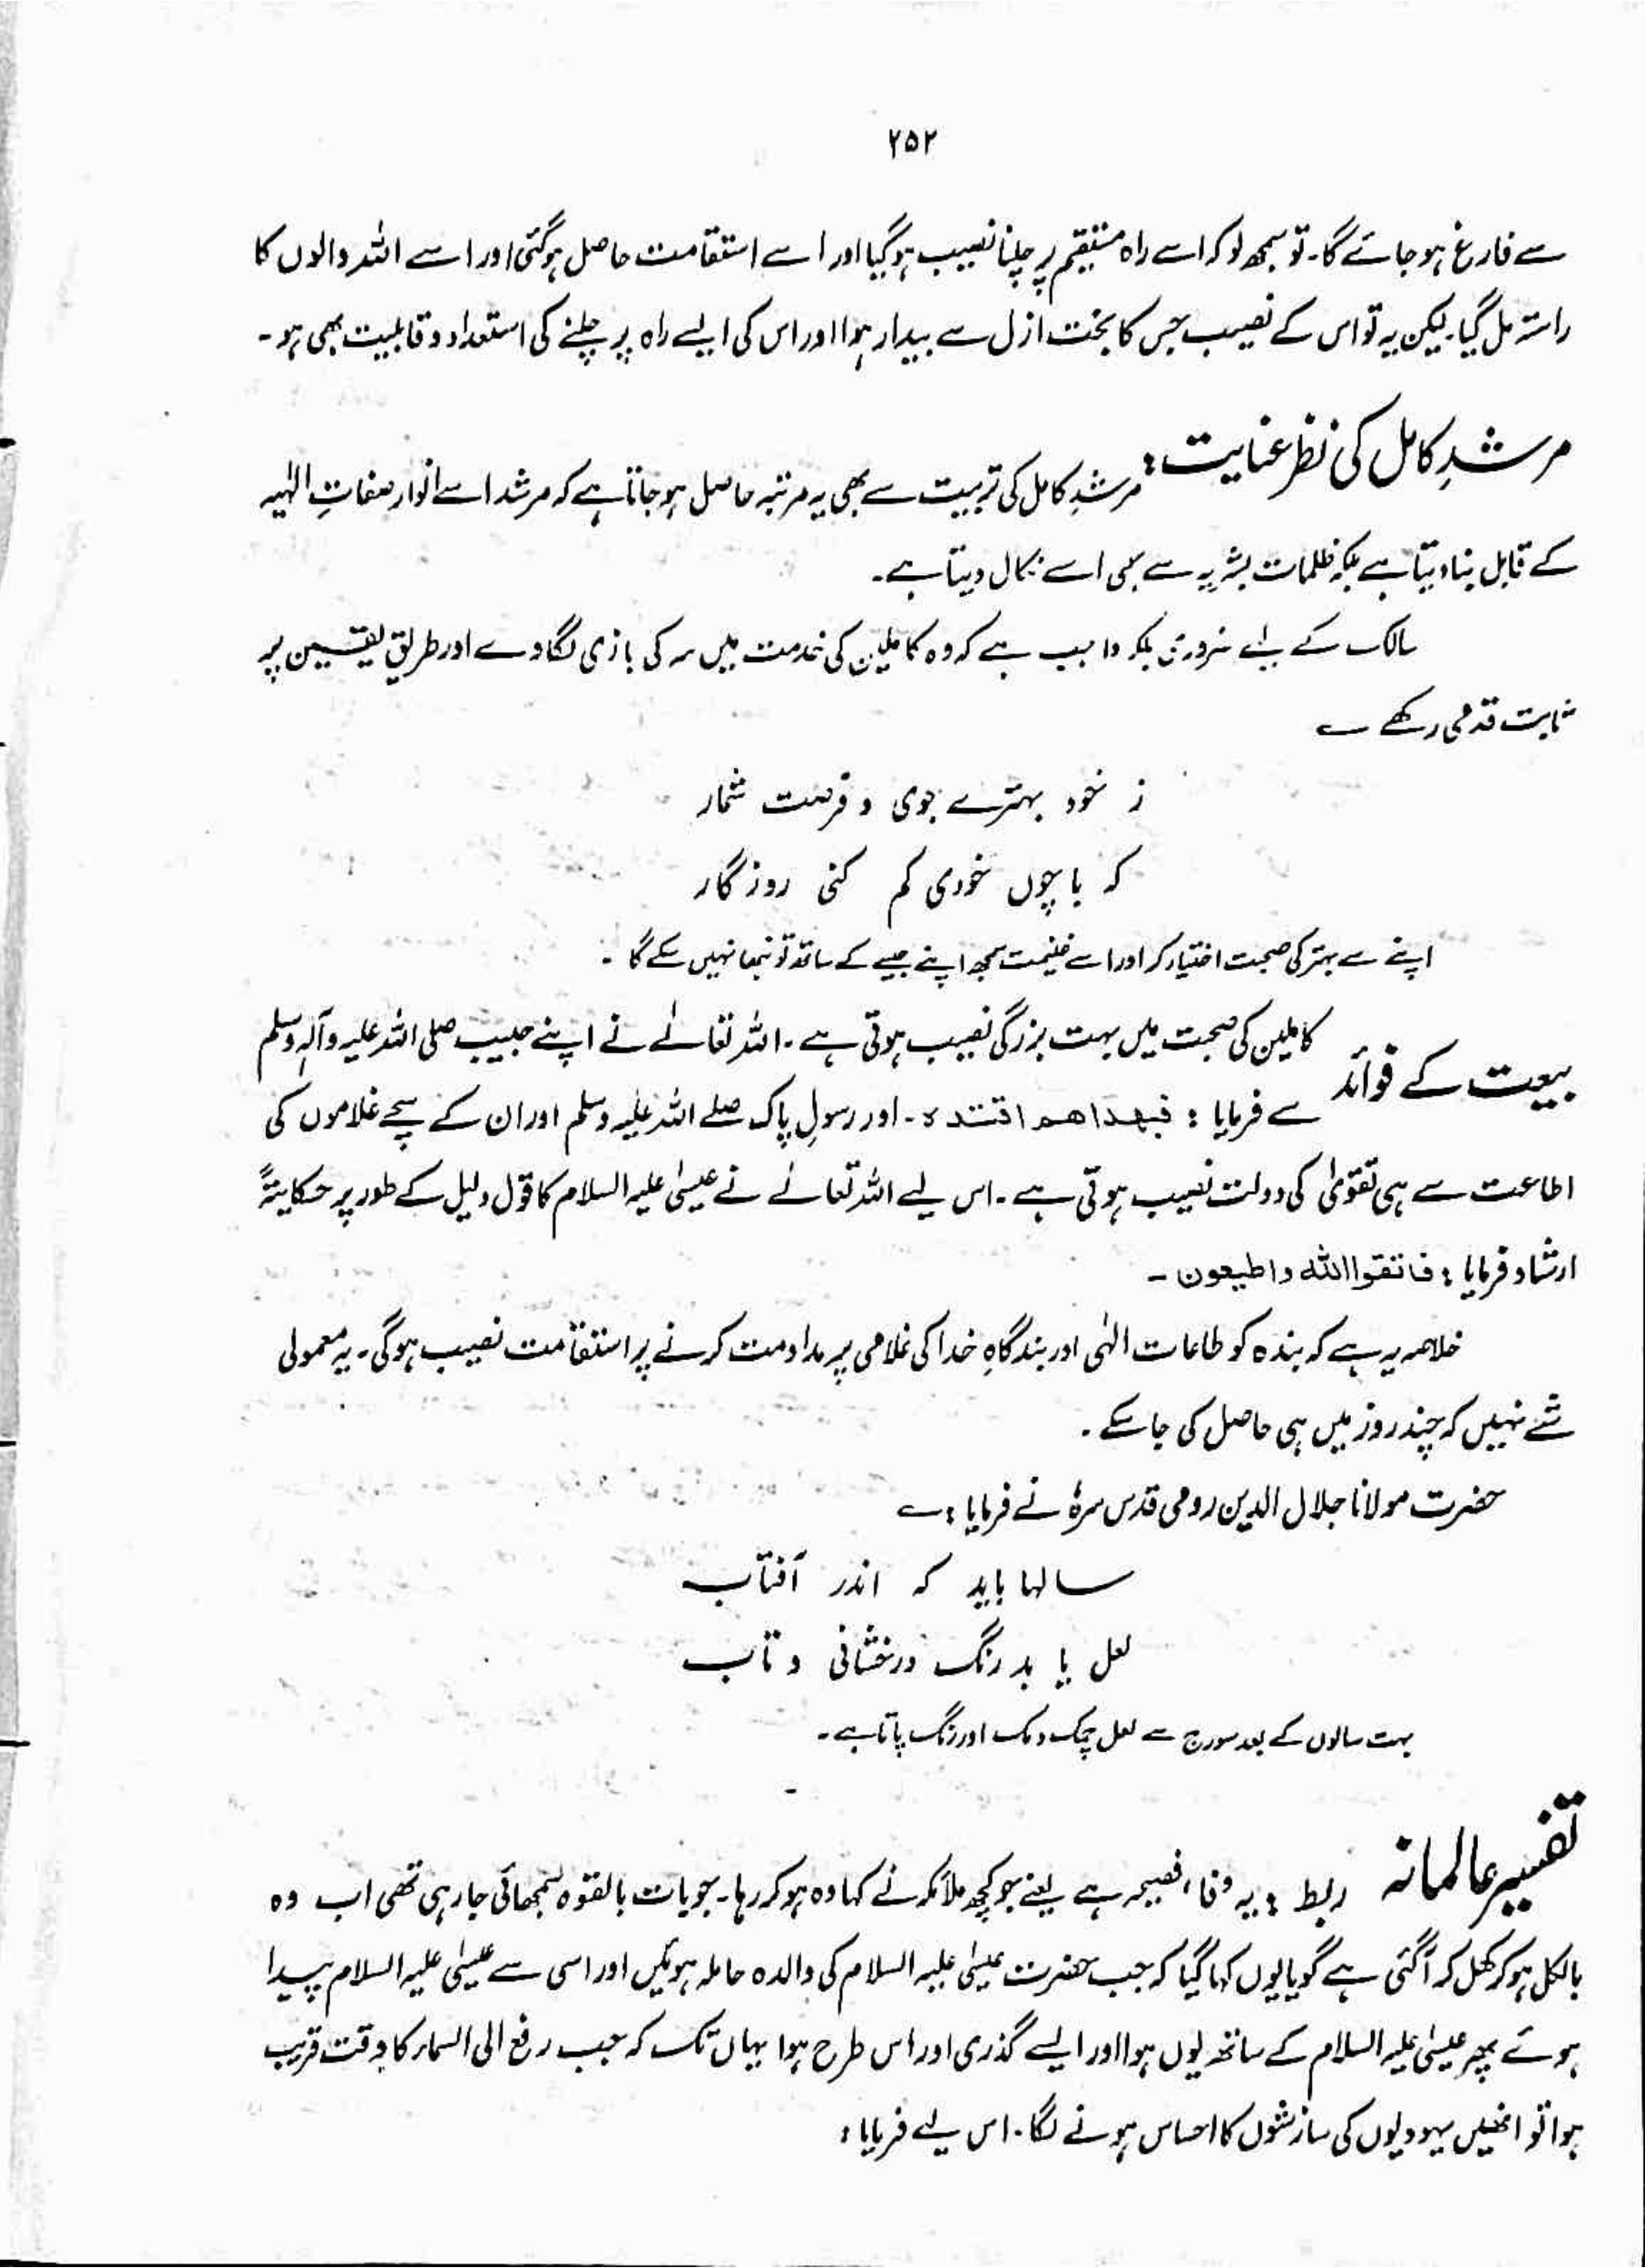 ۲۵۲
سے فارغ ہو جائے گا۔ تو سمجھ لو کہ اسے راہ مستقیم پر چلنا نصیب ہو گیا اور اسے استقامت حاصل ہو گئی اور اسے اللہ والوں کا
راستہ مل گیا۔ لیکن یہ تو اس کے نصیب جس کا بخت ازل سے بیدار ہوا اور اس کی ایسے راہ پر چلنے کی استعداد و قابلیت بھی ہو۔
مرشدِ کامل کی نظر عنایت : مرشدِ کامل کی تربیت سے بھی یہ مرتبہ حاصل ہو جاتا ہے کہ مرشد اسے انوار صفاتِ الٰہیہ
کے قابل بنا دیتا ہے بلکہ ظلمات بشریہ سے بھی اسے نکال دیتا ہے۔
سالک کے لیے ضروری بلکہ واجب ہے کہ وہ کاملین کی خدمت میں سر کی بازی لگا دے اور طریق یقین پر
ثابت قدمی رکھے ؎
ز خود بہترے جوی و فرصت شمار
کہ با چوں خودی گم کنی روزگار
اپنے سے بہتر کی صحبت اختیار کر اور اسے غنیمت سمجھ اپنے جیسے کے ساتھ تو نبھا نہیں سکے گا ۔
بیعت کے فوائد کاملین کی صحبت میں بہت بزرگی نصیب ہوتی ہے۔ اللہ تعالےٰ نے اپنے حبیب صلی اللہ علیہ وآلہٖ وسلم
سے فرمایا : فبھداھم اقتدہ ۔ اور رسولِ پاک صلے اللہ علیہ وسلم اور ان کے سچے غلاموں کی
اطاعت سے ہی تقویٰ کی دولت نصیب ہوتی ہے۔ اس لیے اللہ تعالےٰ نے عیسیٰ علیہ السلام کا قول دلیل کے طور پر حکایتہً
ارشاد فرمایا : فاتقوا اللہ واطیعون ۔
خلاصہ یہ ہے کہ بندہ کو طاعات الٰہی اور بندگاہِ خدا کی غلامی پر مداومت کرنے پر استقامت نصیب ہوگی۔ یہ معمولی
شے نہیں کہ چند روز میں ہی حاصل کی جا سکے ۔
حضرت مولانا جلال الدین رومی قدس سرہٗ نے فرمایا : ؎
سالہا باید کہ اندر آفتاب
لعل یا بد رنگ درخشانی و تاب
بہت سالوں کے بعد سورج سے لعل چمک دمک اور رنگ پاتا ہے۔
تفسیر عالمانہ ربط : یہ فاء فصیحہ ہے یعنے جو کچھ ملائکہ نے کہا وہ ہو کر رہا۔ جو بات بالقوہ سمجھائی جا رہی تھی اب وہ
بالکل ہو کر کھل کر آگئی ہے گویا یوں کہا گیا کہ جب حضرت عیسٰی علیہ السلام کی والدہ حاملہ ہوئیں اور اسی سے عیسٰی علیہ السلام پیدا
ہوئے پھر عیسٰی علیہ السلام کے ساتھ یوں ہوا اور ایسے گذری اور اس طرح ہوا یہاں تک کہ جب رفع الی السماء کا وقت قریب
ہوا تو انھیں یہودیوں کی سازشوں کا احساس ہونے لگا۔ اس لیے فرمایا :